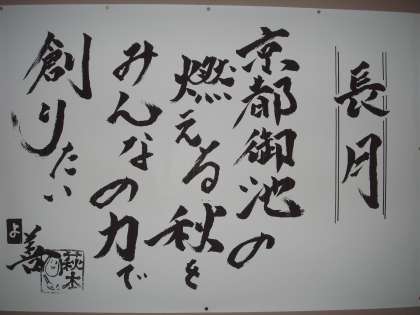 長月
京都御池の
燃える秋を
みんなの力で
創りたい
よ
善
萩本